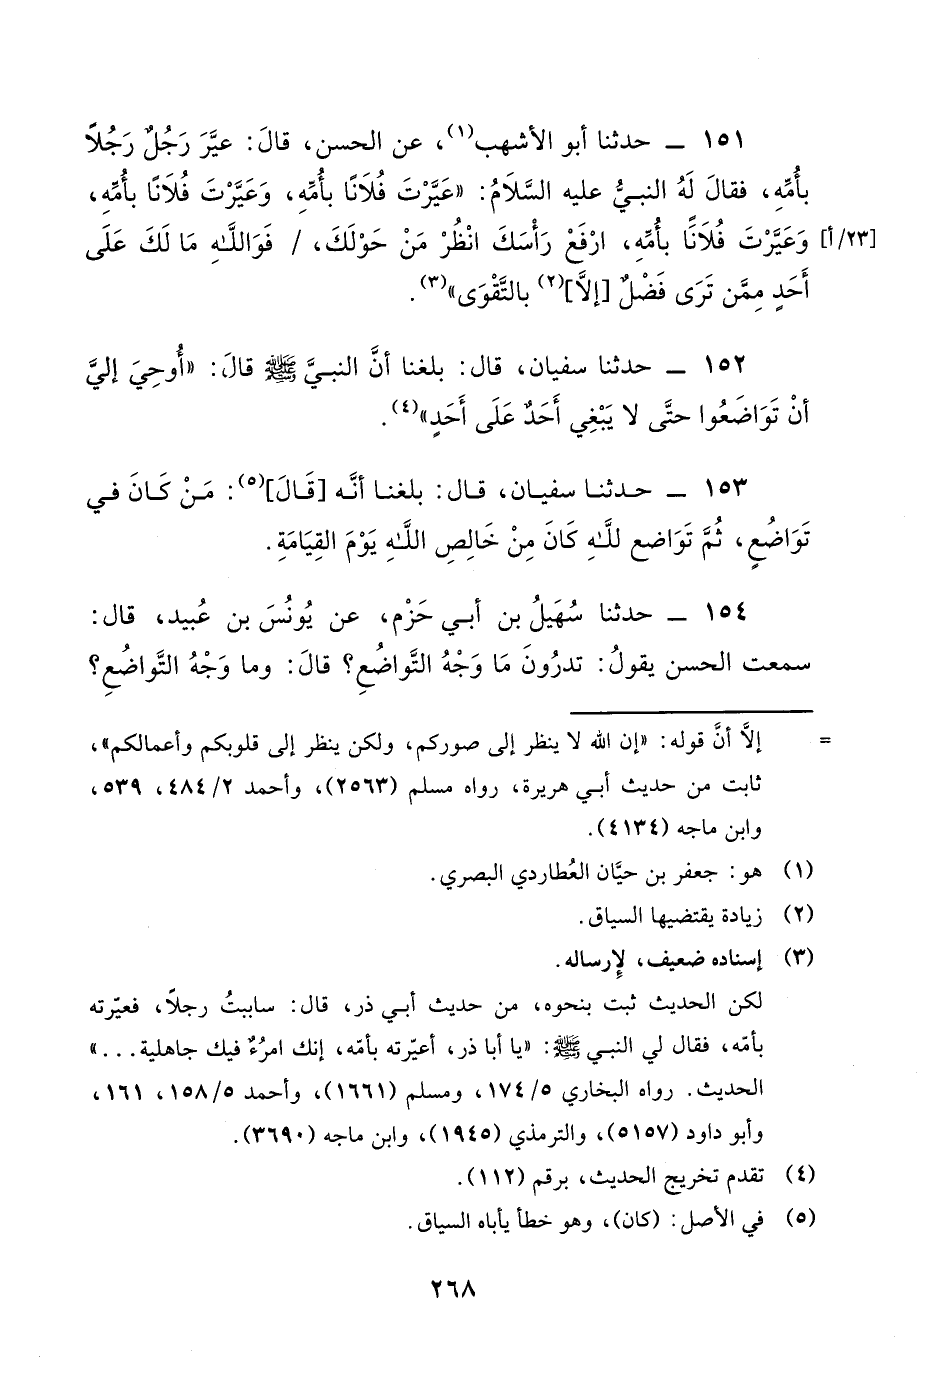 ١٥١ ــ حدثنا أبو الأشهب(١)، عن الحسن، قالَ: عيَّرَ رَجُلٌ رَجُلاً
بأُمِّهِ، فقالَ لَهُ النبيُّ عليه السَّلَامُ: «عَيَّرْتَ فُلَانًا بأُمِّهِ، وَعَيَّرْتَ فُلَانًا بأُمِّهِ،
[٢٣/أ] وَعَيَّرْتَ فُلَانًا بأُمِّهِ، ارْفَعْ رَأْسَكَ انْظُرْ مَنْ حَوْلَكَ، / فَوَاللَّهِ مَا لَكَ عَلَى
أَحَدٍ مِمَّن تَرَى فَضْلٌ [إلاَّ](٢) بالتَّقْوَى»(٣).
١٥٢ ــ حدثنا سفيان، قال: بلغنا أنَّ النبيَّ ﷺ قالَ: «أُوحِيَ إليَّ
أنْ تَوَاضَعُوا حتَّى لا يَبْغِي أَحَدٌ عَلَى أَحَدٍ»(٤).
١٥٣ ــ حدثنا سفيان، قال: بلغنا أنَّه [قَالَ](٥): مَنْ كَانَ في
تَوَاضُعٍ، ثُمَّ تَوَاضع للَّهِ كَانَ مِنْ خَالِصِ اللَّهِ يَوْمَ القِيَامَةِ.
١٥٤ ــ حدثنا سُهَيلُ بن أبي حَزْم، عن يُونُسَ بن عُبيد، قال:
سمعت الحسن يقولُ: تدرُونَ مَا وَجْهُ التَّواضُعِ؟ قالَ: وما وَجْهُ التَّواضُعِ؟
= إلاَّ أنَّ قوله: «إن الله لا ينظر إلى صوركم، ولكن ينظر إلى قلوبكم وأعمالكم»،
ثابت من حديث أبي هريرة، رواه مسلم (٢٥٦٣)، وأحمد ٢/ ٤٨٤، ٥٣٩،
وابن ماجه (٤١٣٤).
(١) هو: جعفر بن حيَّان العُطاردي البصري.
(٢) زيادة يقتضيها السياق.
(٣) إسناده ضعيف، لإِرساله.
لكن الحديث ثبت بنحوه، من حديث أبي ذر، قال: ساببتُ رجلاً، فعيّرته
بأمّه، فقال لي النبي ﷺ: «يا أبا ذر، أعيّرته بأمّه، إنك امرُءٌ فيك جاهلية...»
الحديث. رواه البخاري ٥/ ١٧٤، ومسلم (١٦٦١)، وأحمد ٥/ ١٥٨، ١٦١،
وأبو داود (٥١٥٧)، والترمذي (١٩٤٥)، وابن ماجه (٣٦٩٠).
(٤) تقدم تخريج الحديث، برقم (١١٢).
(٥) في الأصل: (كان)، وهو خطأ يأباه السياق.
٢٦٨